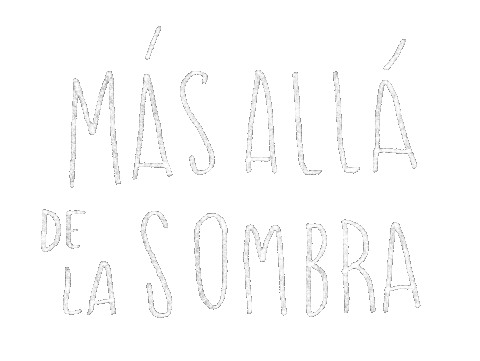 MÁS ALLÁ
DE
LA SOMBRA